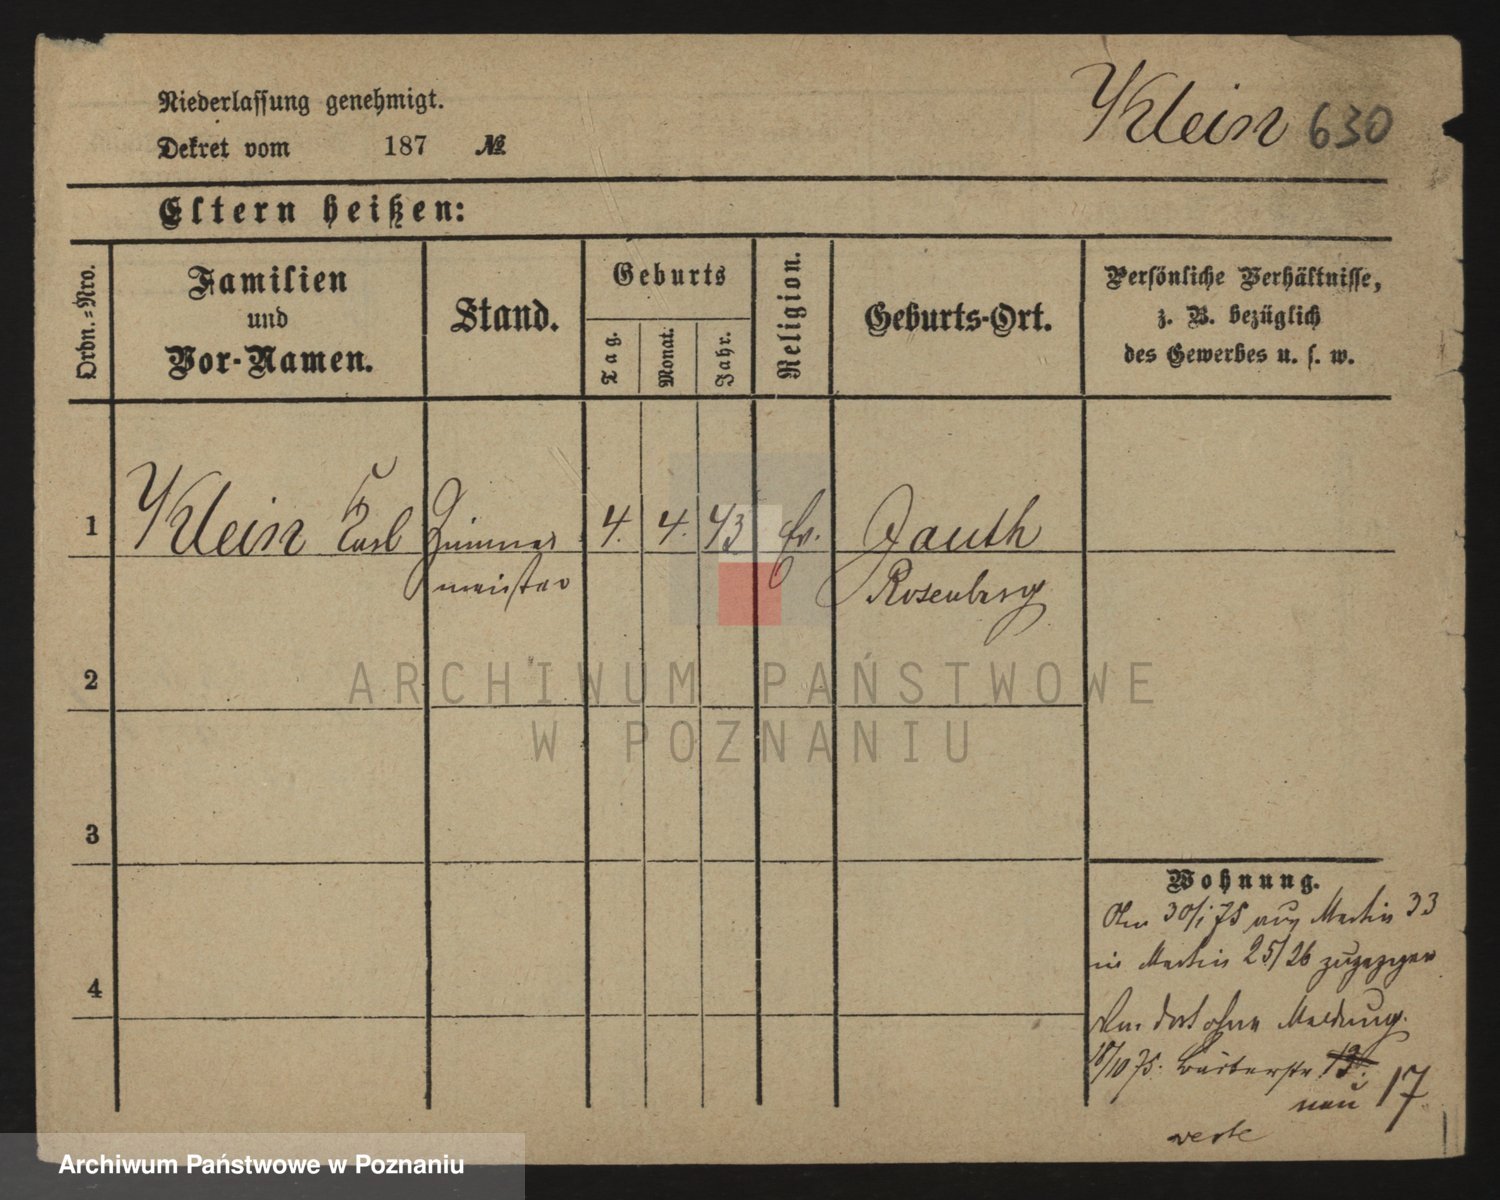 Niederlassung genehmigt.
Klein 630
Dekret vom 187 №
Eltern heißen:
Ordn.-Nro.
Familien
und
Vor-Namen.
Stand.
Geburts
Tag.
Monat.
Jahr.
Religion.
Geburts-Ort.
Persönliche Verhältnisse,
z. B. bezüglich
des Gewerbes u. s. w.
1 Klein Karl Zimmer 4. 4. 43 Ev. Jauth
meister Rosenberg
2
ARCHIWUM PAŃSTWOWE
W POZNANIU
3
Wohnung.
30/1 75 aus Martin 33
Martin 25/26 zugezogen
4
dort ohne Meldung.
18/10 75. 13.
neu 17
verte
Archiwum Państwowe w Poznaniu